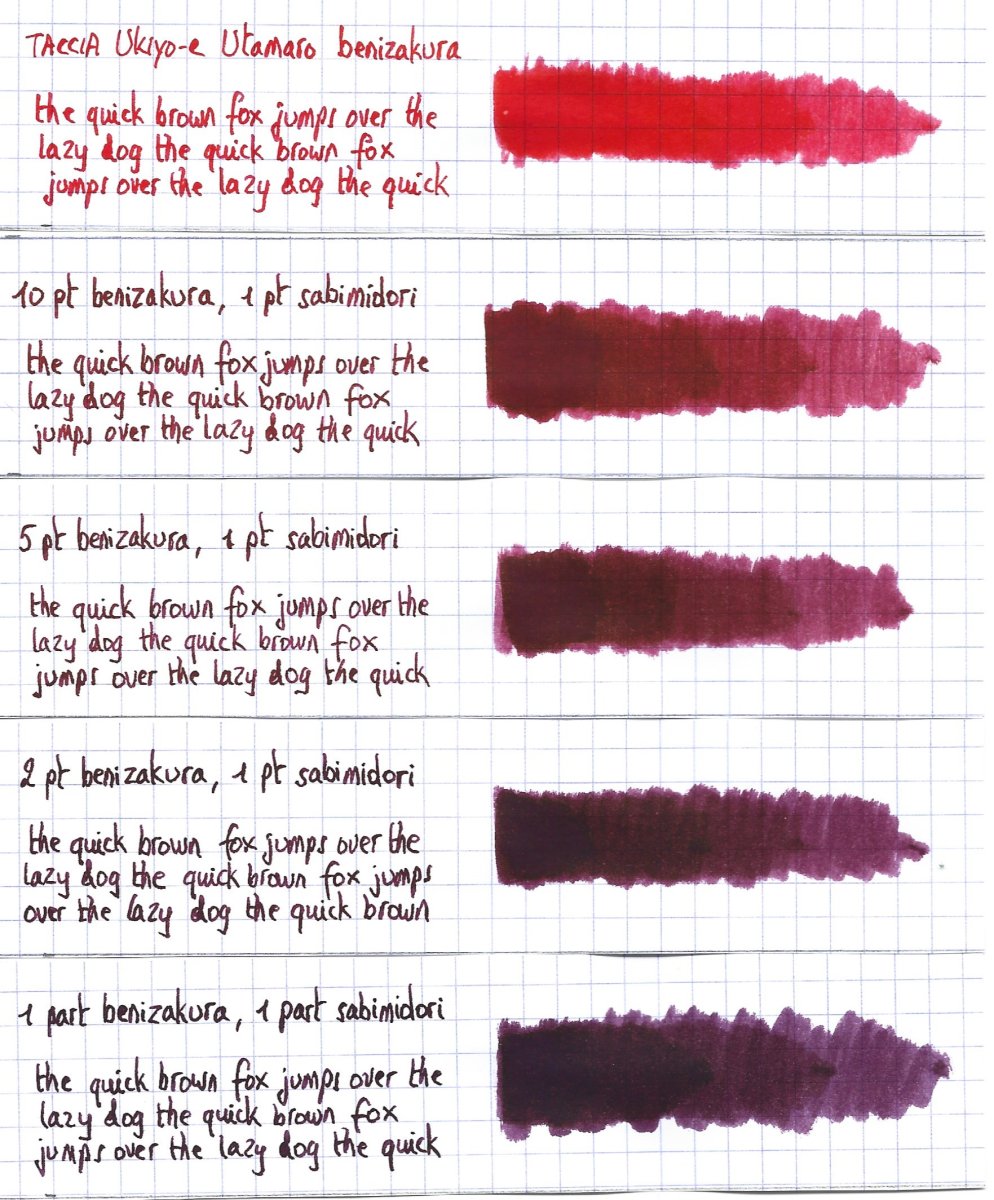 TACCIA Ukiyo-e Utamaro benizakura
the quick brown fox jumps over the
lazy dog the quick brown fox
jumps over the lazy dog the quick
10 pt benizakura, 1 pt sabimidori
the quick brown fox jumps over the
lazy dog the quick brown fox
jumps over the lazy dog the quick
5 pt benizakura, 1 pt sabimidori
the quick brown fox jumps over the
lazy dog the quick brown fox
jumps over the lazy dog the quick
2 pt benizakura, 1 pt sabimidori
the quick brown fox jumps over the
lazy dog the quick brown fox jumps
over the lazy dog the quick brown
1 part benizakura, 1 part sabimidori
the quick brown fox jumps over the
lazy dog the quick brown fox
jumps over the lazy dog the quick